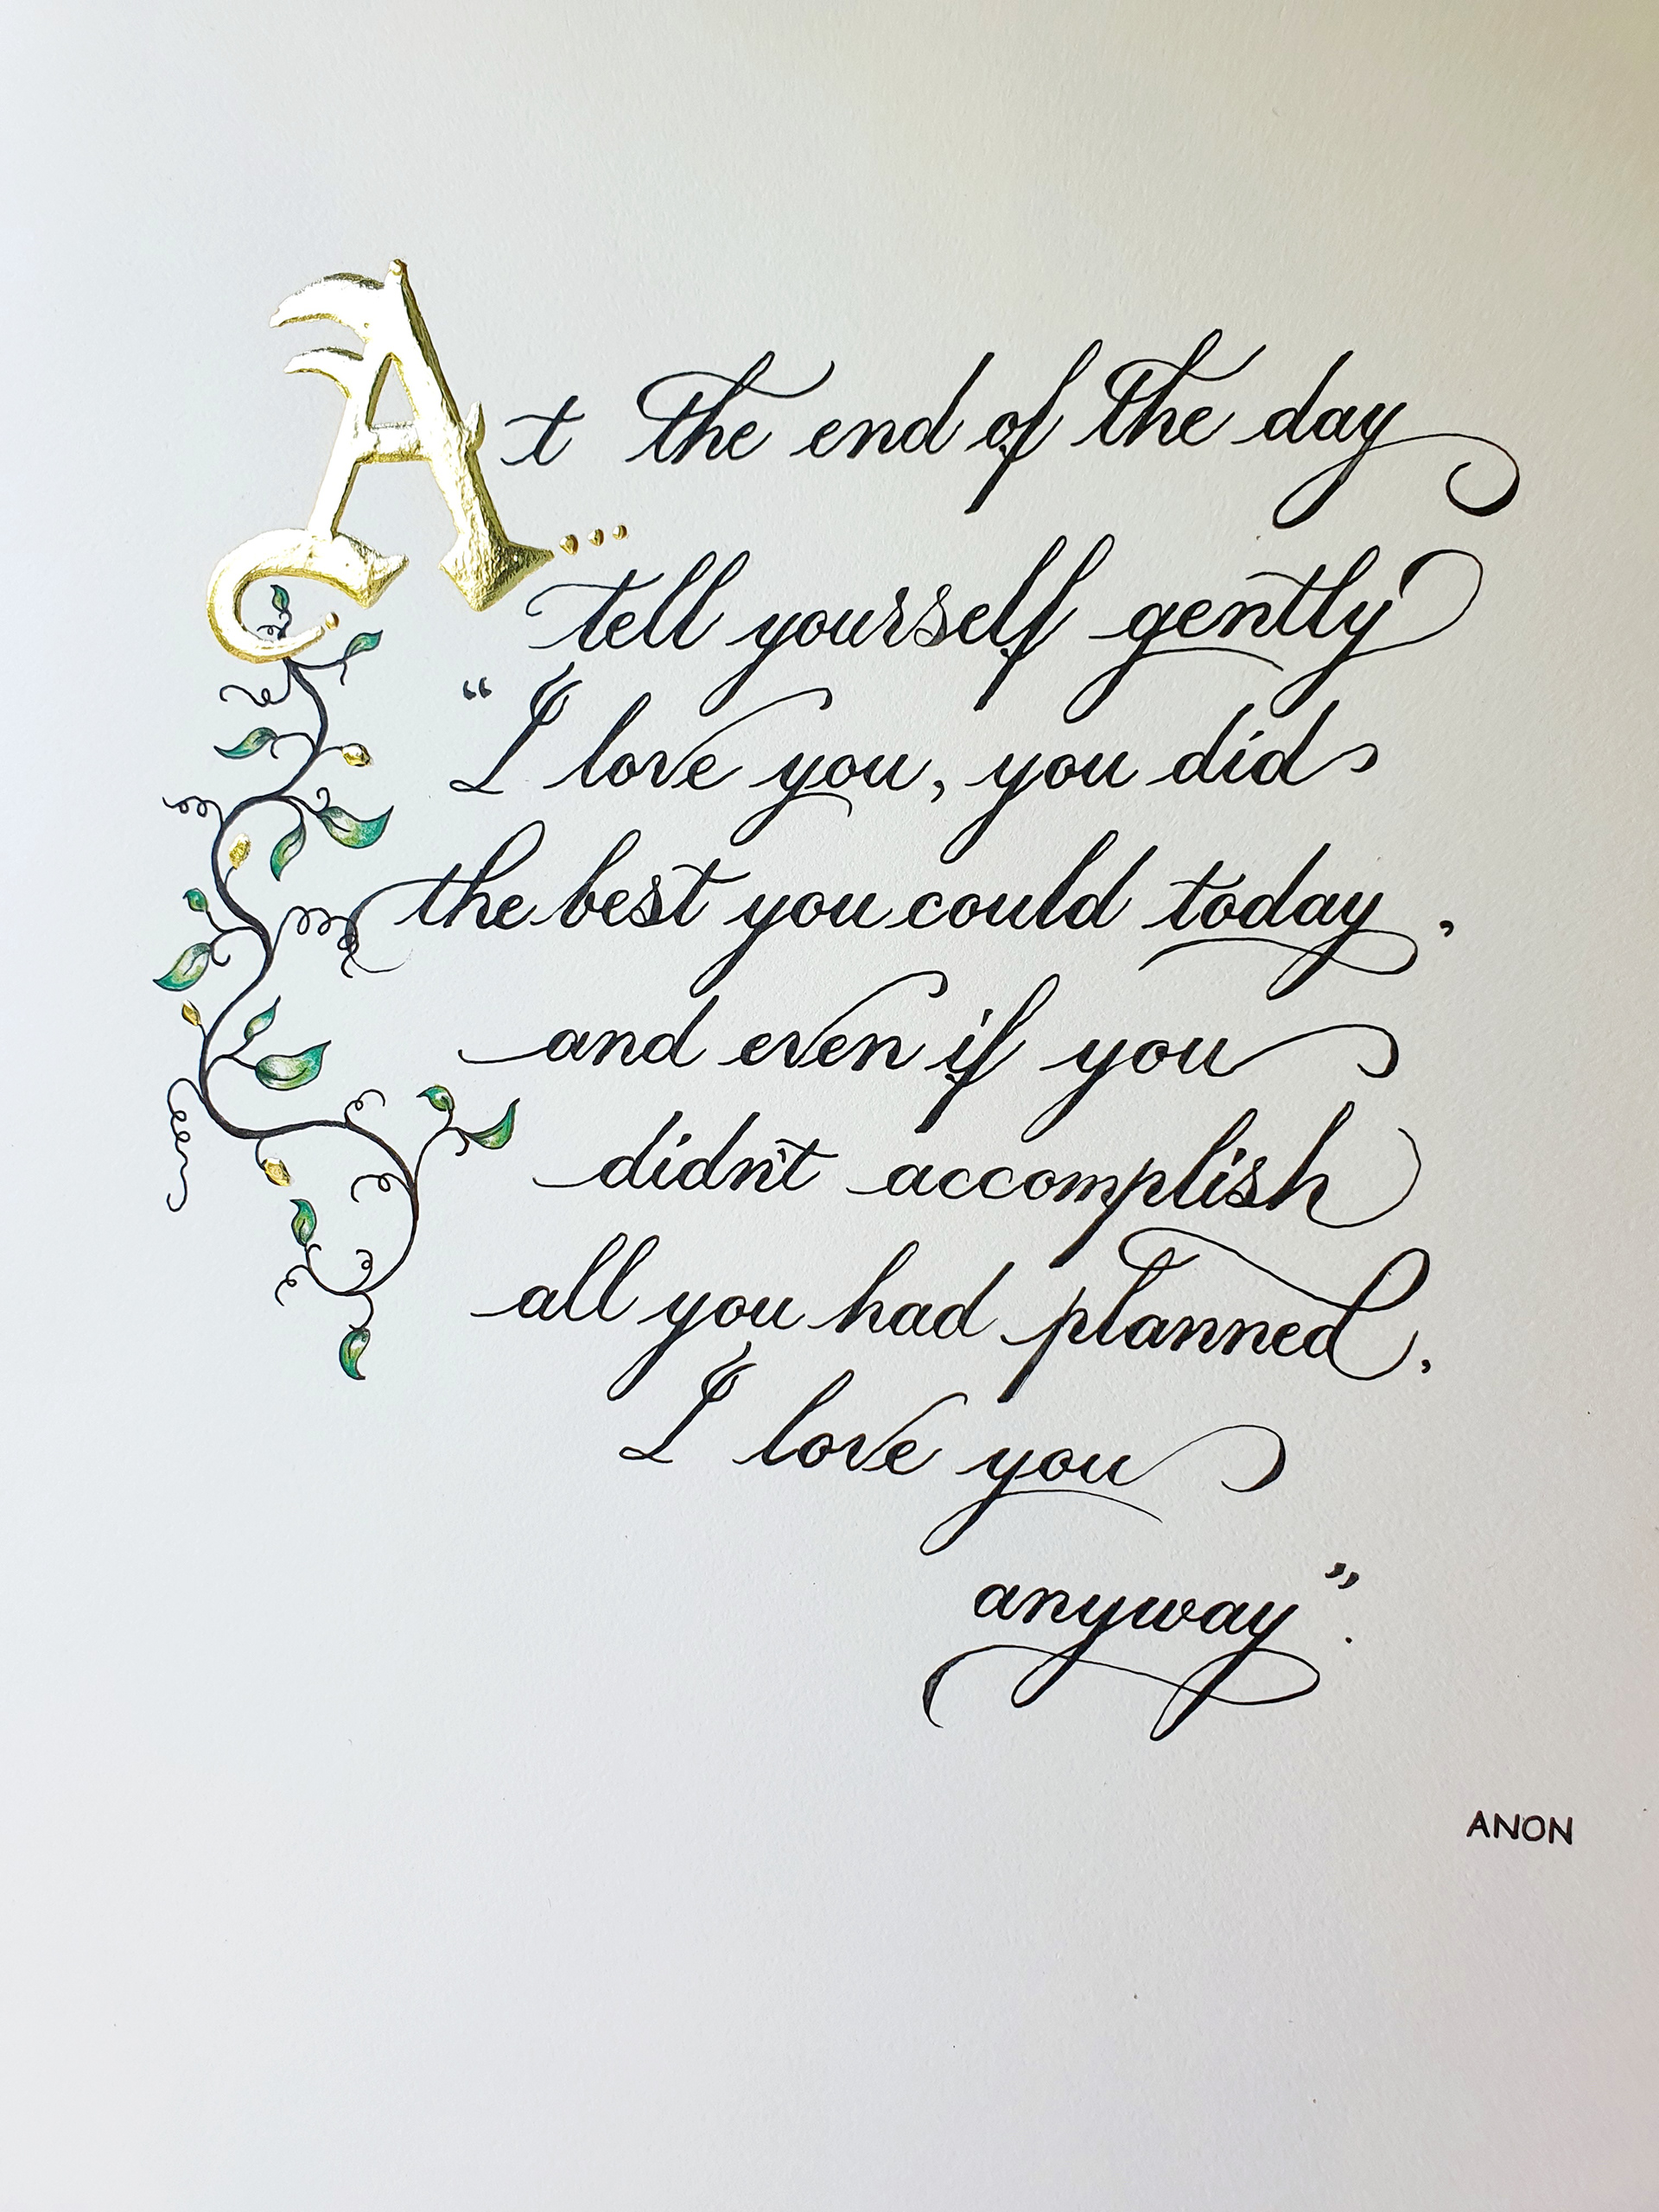 At the end of the day
...
tell yourself gently
“I love you, you did
the best you could today,
and even if you
didn't accomplish
all you had planned,
I love you
anyway”.
ANON